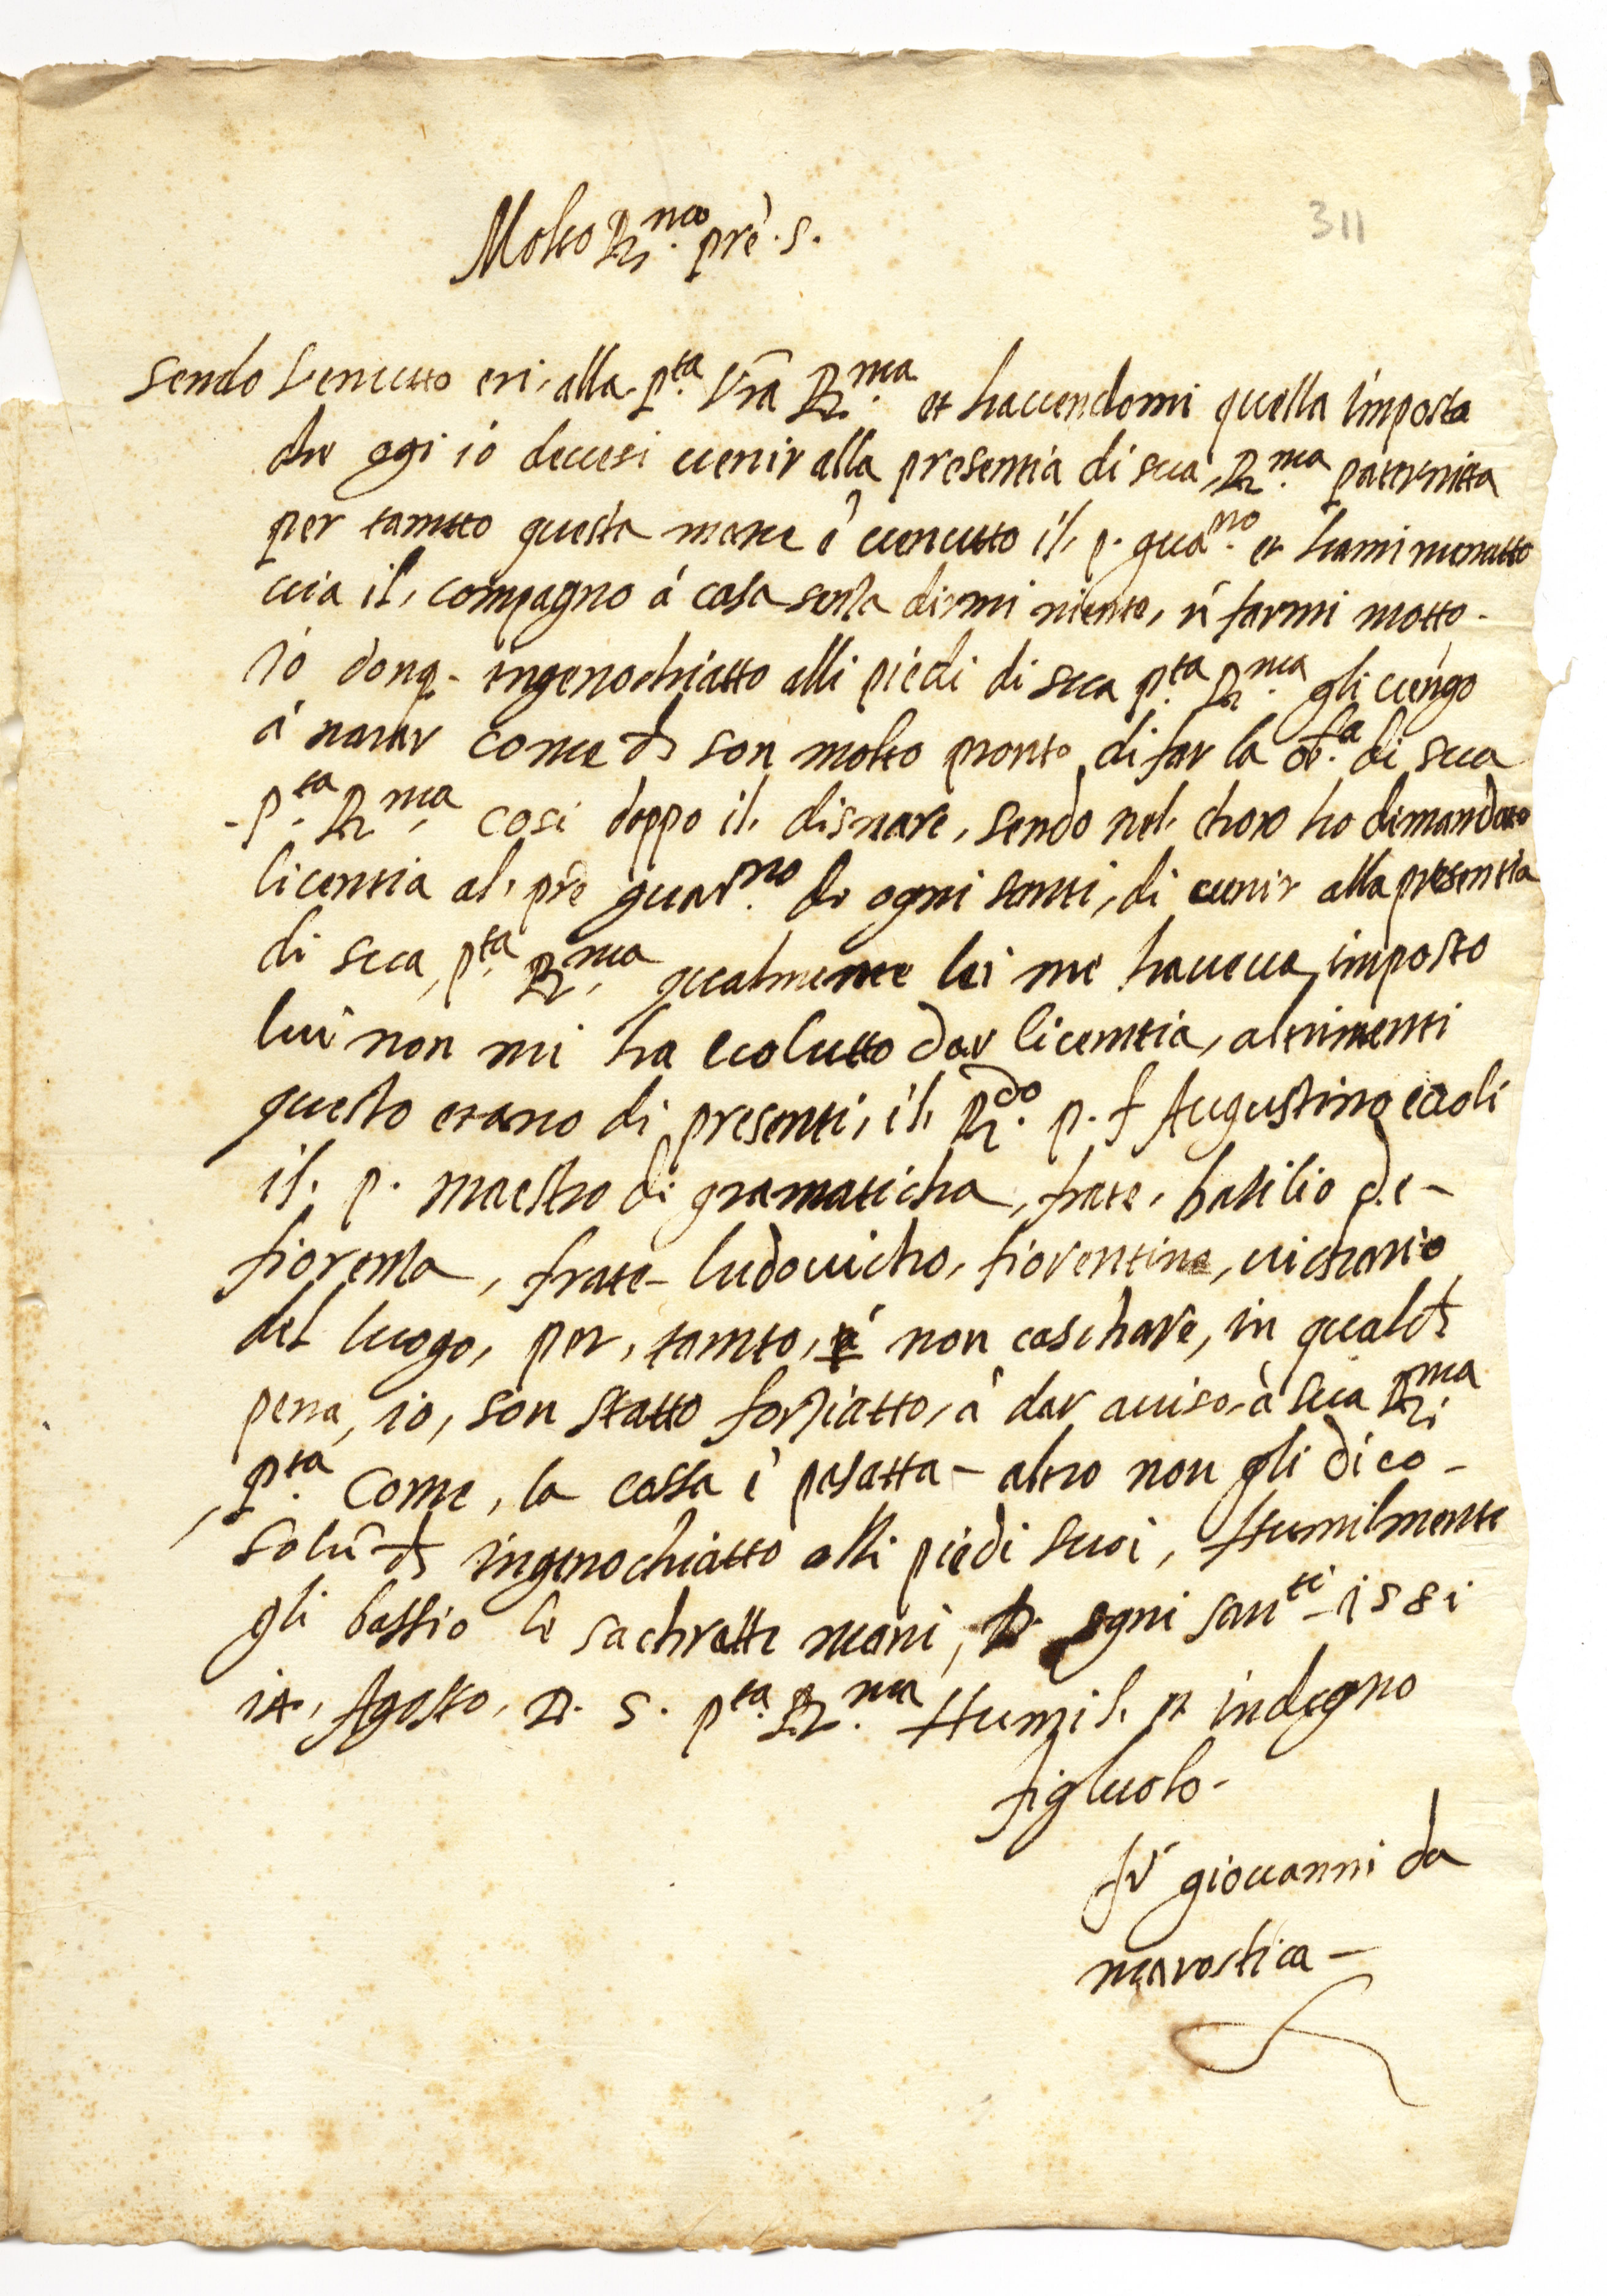 Molto R.mo prē. s.
311
sendo Venutto eri, alla p.ta Vrā R.ma et havendomi quella imposta
che ogi iò devesi venir alla presentia di sua, R.ma paternitta
per tamtto questa mane è venutto il, p. gua.no et hami menatto
via il, compagno à casa senza dirmi niente, ń farmi motto -
iò donq. ingenochiatto alli piedi di sua p.ta R.ma gli vengo
à narar come ch son molto pronto, di far la ob.a di sua
- p.ta R.ma cosi doppo il, disnare, sendo nel, choro ho dimandato
licentia al, prē guar.no de ogni santi, di venir alla presentia
di sua, p.ta R.ma qualmente lei me haveva, imposto
lui non mi ha volutto dar licemtia, altrimenti
questo erano di presenti, il, R.do p. f Augustino
il, p. maestro di gramaticha, frate, basilio de -
fiorenza, frate - ludovicho, fiorentino, vichario
del luogo, per, tamto, à non caschare, in qualch
pena, io, son statto forziatto, à dar aviso, à sua R.ma
, p.ta come, la cossa è pasatta - altro non gli dico -
solū ch ingenochiatto alli piedi suoi, Humilmente
gli bassio le sachratte mani, D. ogni san.ti - 1581
14, Agosto, D. S. p.ta R.ma Humil, et indegno
figluolo -
fr̄ giovanni da
marostica -